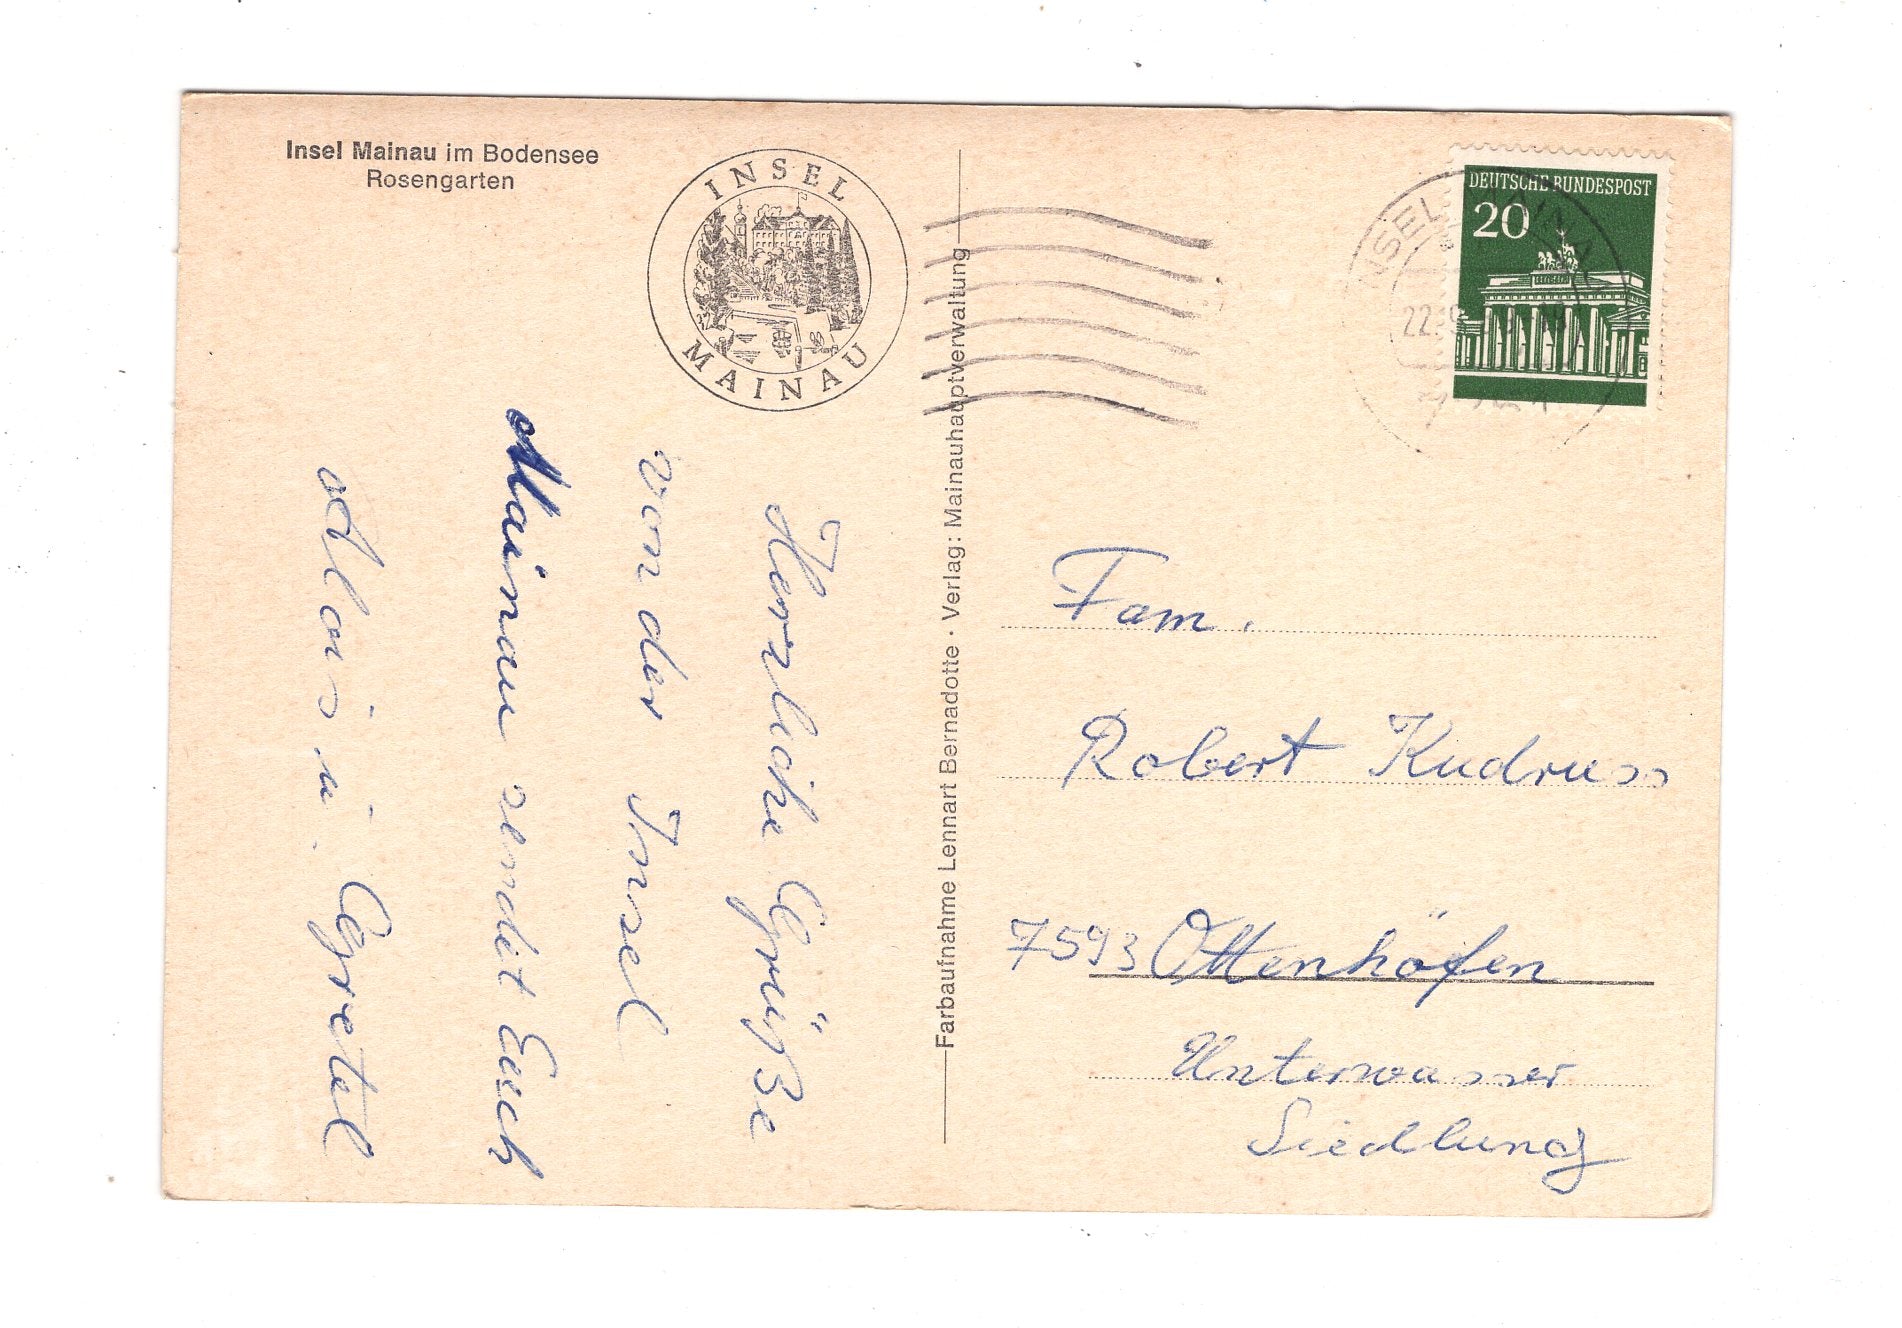 Insel Mainau im Bodensee
Rosengarten
INSEL
MAINAU
Herzliche Grüße
von der Insel
Mainau sendet Euch
Alois u. Gretel
Farbaufnahme Lennart Bernadotte · Verlag: Mainauhauptverwaltung
DEUTSCHE BUNDESPOST
20
INSEL MAINAU
22.9
18
Fam.
Robert Kudruss
7593 Ottenhöfen
Unterwasser
Siedlung